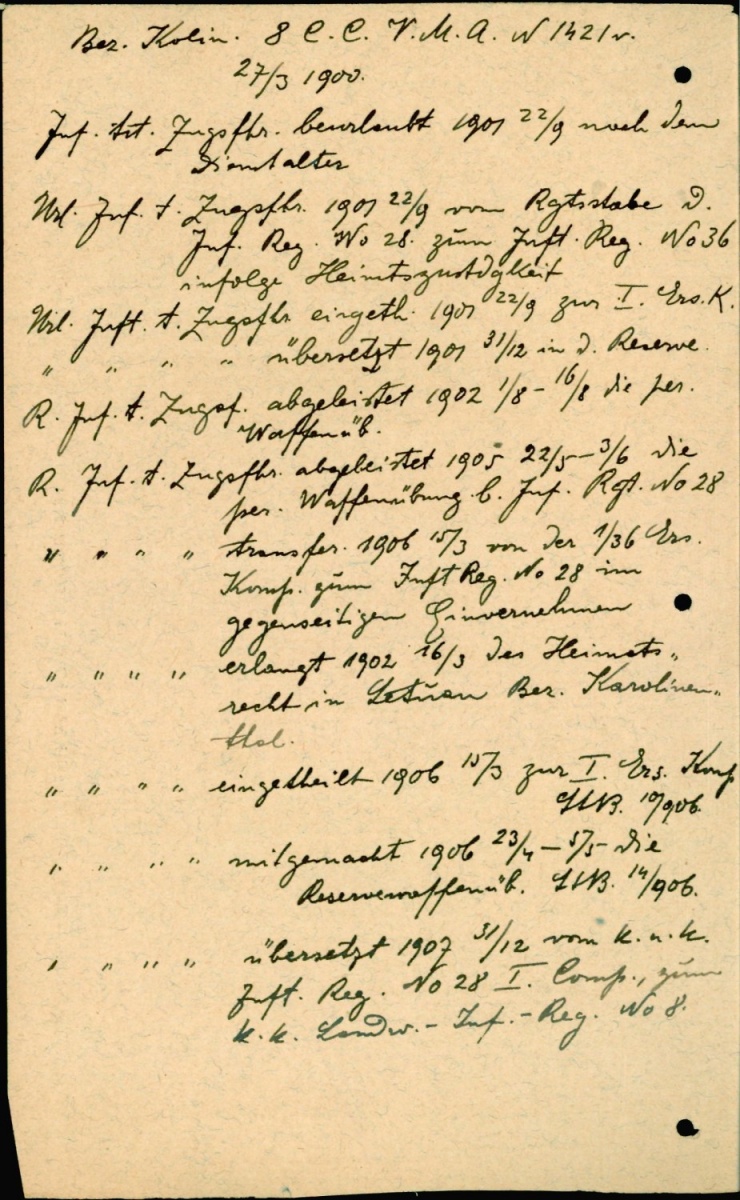 Bez. Kolin. 8 C. C. V. M. A. N 1421 v.
27/3 1900.
Inf. tit. Zugsfhr. beurlaubt 1901 22/9 nach dem
Dienstalter
Url. Inf. t. Zugsfhr. 1901 22/9 vom Rgtsstabe d.
Inf. Reg. No 28. zum Inft. Reg. No 36
infolge Heimtszustdgkeit
Url. Inft. t. Zugsfhr eingeth. 1901 22/9 zur I. Ers. K.
" " " " übersetzt 1901 31/12 in d. Reserve.
R. Inf. t. Zugsf. abgeleistet 1902 1/8 - 16/8 die per.
Waffenüb.
R. Inf. t. Zugsfhr. abgeleistet 1905 22/5 - 3/6 die
per. Waffenübung b. Inf. Rgt. No 28
" " " " transfer. 1906 15/3 von der 1/36 Ers.
Komp. zum Inft Reg. No 28 im
gegenseitigen Einvernehmen
" " " " erlangt 1902 16/3 das Heimats„
recht in Letňan Bez. Karolinen„
thal.
" " " " eingetheilt 1906 15/3 zur I. Ers. Komp
10/906.
" " " " mitgemacht 1906 23/4 - 5/5 die
Reservewaffenüb. 14/906.
" " " " übersetzt 1907 31/12 vom k. u. k.
Inft. Reg. No 28 I. Comp., zum
k. k. Landw. - Inf. - Reg. No 8.